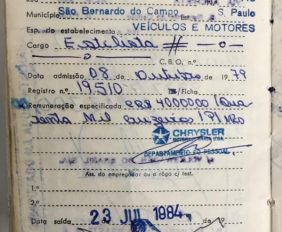 São Bernardo do Campo S. Paulo
Esp. do estabelecimento VEÍCULOS E MOTORES
Cargo Estilista
C.B.O. n.º
Data admissão 08 de Outubro de 1979
Registro n.º 19.510 Fls./Ficha
Remuneração especificada 40.000,00 (Qua
renta Mil cruzeiros) P/ Mês
CHRYSLER
DEPARTAMENTO DE PESSOAL
Ass. do empregador ou a rogo c/ test.
1.º
2.º
Data saída 23 JUL 1984 de